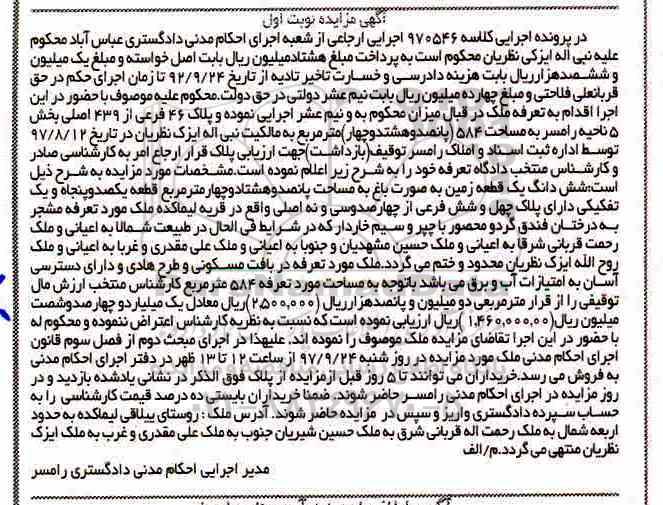 آگهی مزایده نوبت اول
در پرونده اجرایی کلاسه ۹۷۰۵۴۶ اجرایی ارجاعی از شعبه اجرای احکام مدنی دادگستری عباس آباد محکوم
علیه نبی اله ایزکی نظریان محکوم است به پرداخت مبلغ هشتادمیلیون ریال بابت اصل خواسته و مبلغ یک میلیون
و ششصدهزارریال بابت هزینه دادرسی و خسارت تاخیر تادیه از تاریخ ۹۲/۹/۲۴ تا زمان اجرای حکم در حق
قربانعلی فلاحتی و مبلغ چهارده میلیون ریال بابت نیم عشر دولتی در حق دولت.محکوم علیه موصوف با حضور در این
اجرا اقدام به تعرفه ملک در قبال میزان محکوم به و نیم عشر اجرایی نموده و پلاک ۴۶ فرعی از ۴۳۹ اصلی بخش
۵ ناحیه رامسر به مساحت ۵۸۴ (پانصدوهشتدوچهار)مترمربع به مالکیت نبی اله ایزک نظریان در تاریخ ۹۷/۸/۱۲
توسط اداره ثبت اسناد و املاک رامسر توقیف(بازداشت)جهت ارزیابی پلاک قرار ارجاع امر به کارشناسی صادر
و کارشناس منتخب دادگاه تعرفه خود را به شرح زیر اعلام نموده است.مشخصات مورد مزایده به شرح ذیل
است:شش دانگ یک قطعه زمین به صورت باغ به مساحت پانصدوهشتادوچهارمترمربع قطعه یکصدوپنجاه و یک
تفکیکی دارای پلاک چهل و شش فرعی از چهارصدوسی و نه اصلی واقع در قریه لیماکده ملک مورد تعرفه مشجر
به درختان فندق گردو محصور با چپر و سیم خاردار که در شرایط فی الحال در طبیعت شمالا به اعیانی و ملک
رحمت قربانی شرقا به اعیانی و ملک حسین مشهدیان و جنوبا به اعیانی و ملک علی مقدری و غربا به اعیانی و ملک
روح الله ایزک نظریان محدود و ختم می گردد.ملک مورد تعرفه در بافت مسکونی و طرح هادی و دارای دسترسی
آسان به امتیازات آب و برق می باشد باتوجه به مساحت مورد تعرفه ۵۸۴ مترمربع کارشناس منتخب ارزش مال
توقیفی را از قرار مترمربعی دو میلیون و پانصدهزارریال (۲۵۰۰,۰۰۰)ریال معادل یک میلیاردو چهارصدوشصت
میلیون ریال(۱,۴۶۰,۰۰۰,۰۰)ریال ارزیابی نموده است که نسبت به نظریه کارشناس اعتراض ننموده و محکوم له
با حضور در این اجرا تقاضای مزایده ملک موصوف را نموده اند. علیهذا در اجرای مبحث دوم از فصل سوم قانون
اجرای احکام مدنی ملک مورد مزایده در روز شنبه ۹۷/۹/۲۴ از ساعت ۱۲ تا ۱۳ ظهر در دفتر اجرای احکام مدنی
به فروش می رسد.خریداران می توانند تا ۵ روز قبل ازمزایده از پلاک فوق الذکر در نشانی یادشده بازدید و در
روز مزایده در اجرای احکام مدنی رامسر حاضر شوند.ضمنا خریداران بایستی ده درصد قیمت کارشناسی را به
حساب سپرده دادگستری واریز و سپس در مزایده حاضر شوند. آدرس ملک : روستای ییلاقی لیماکده به حدود
اربعه شمال به ملک رحمت اله قربانی شرق به ملک حسین شیریان جنوب به ملک علی مقدری و غرب به ملک ایزک
نظریان منتهی می گردد.م/الف
مدیر اجرایی احکام مدنی دادگستری رامسر